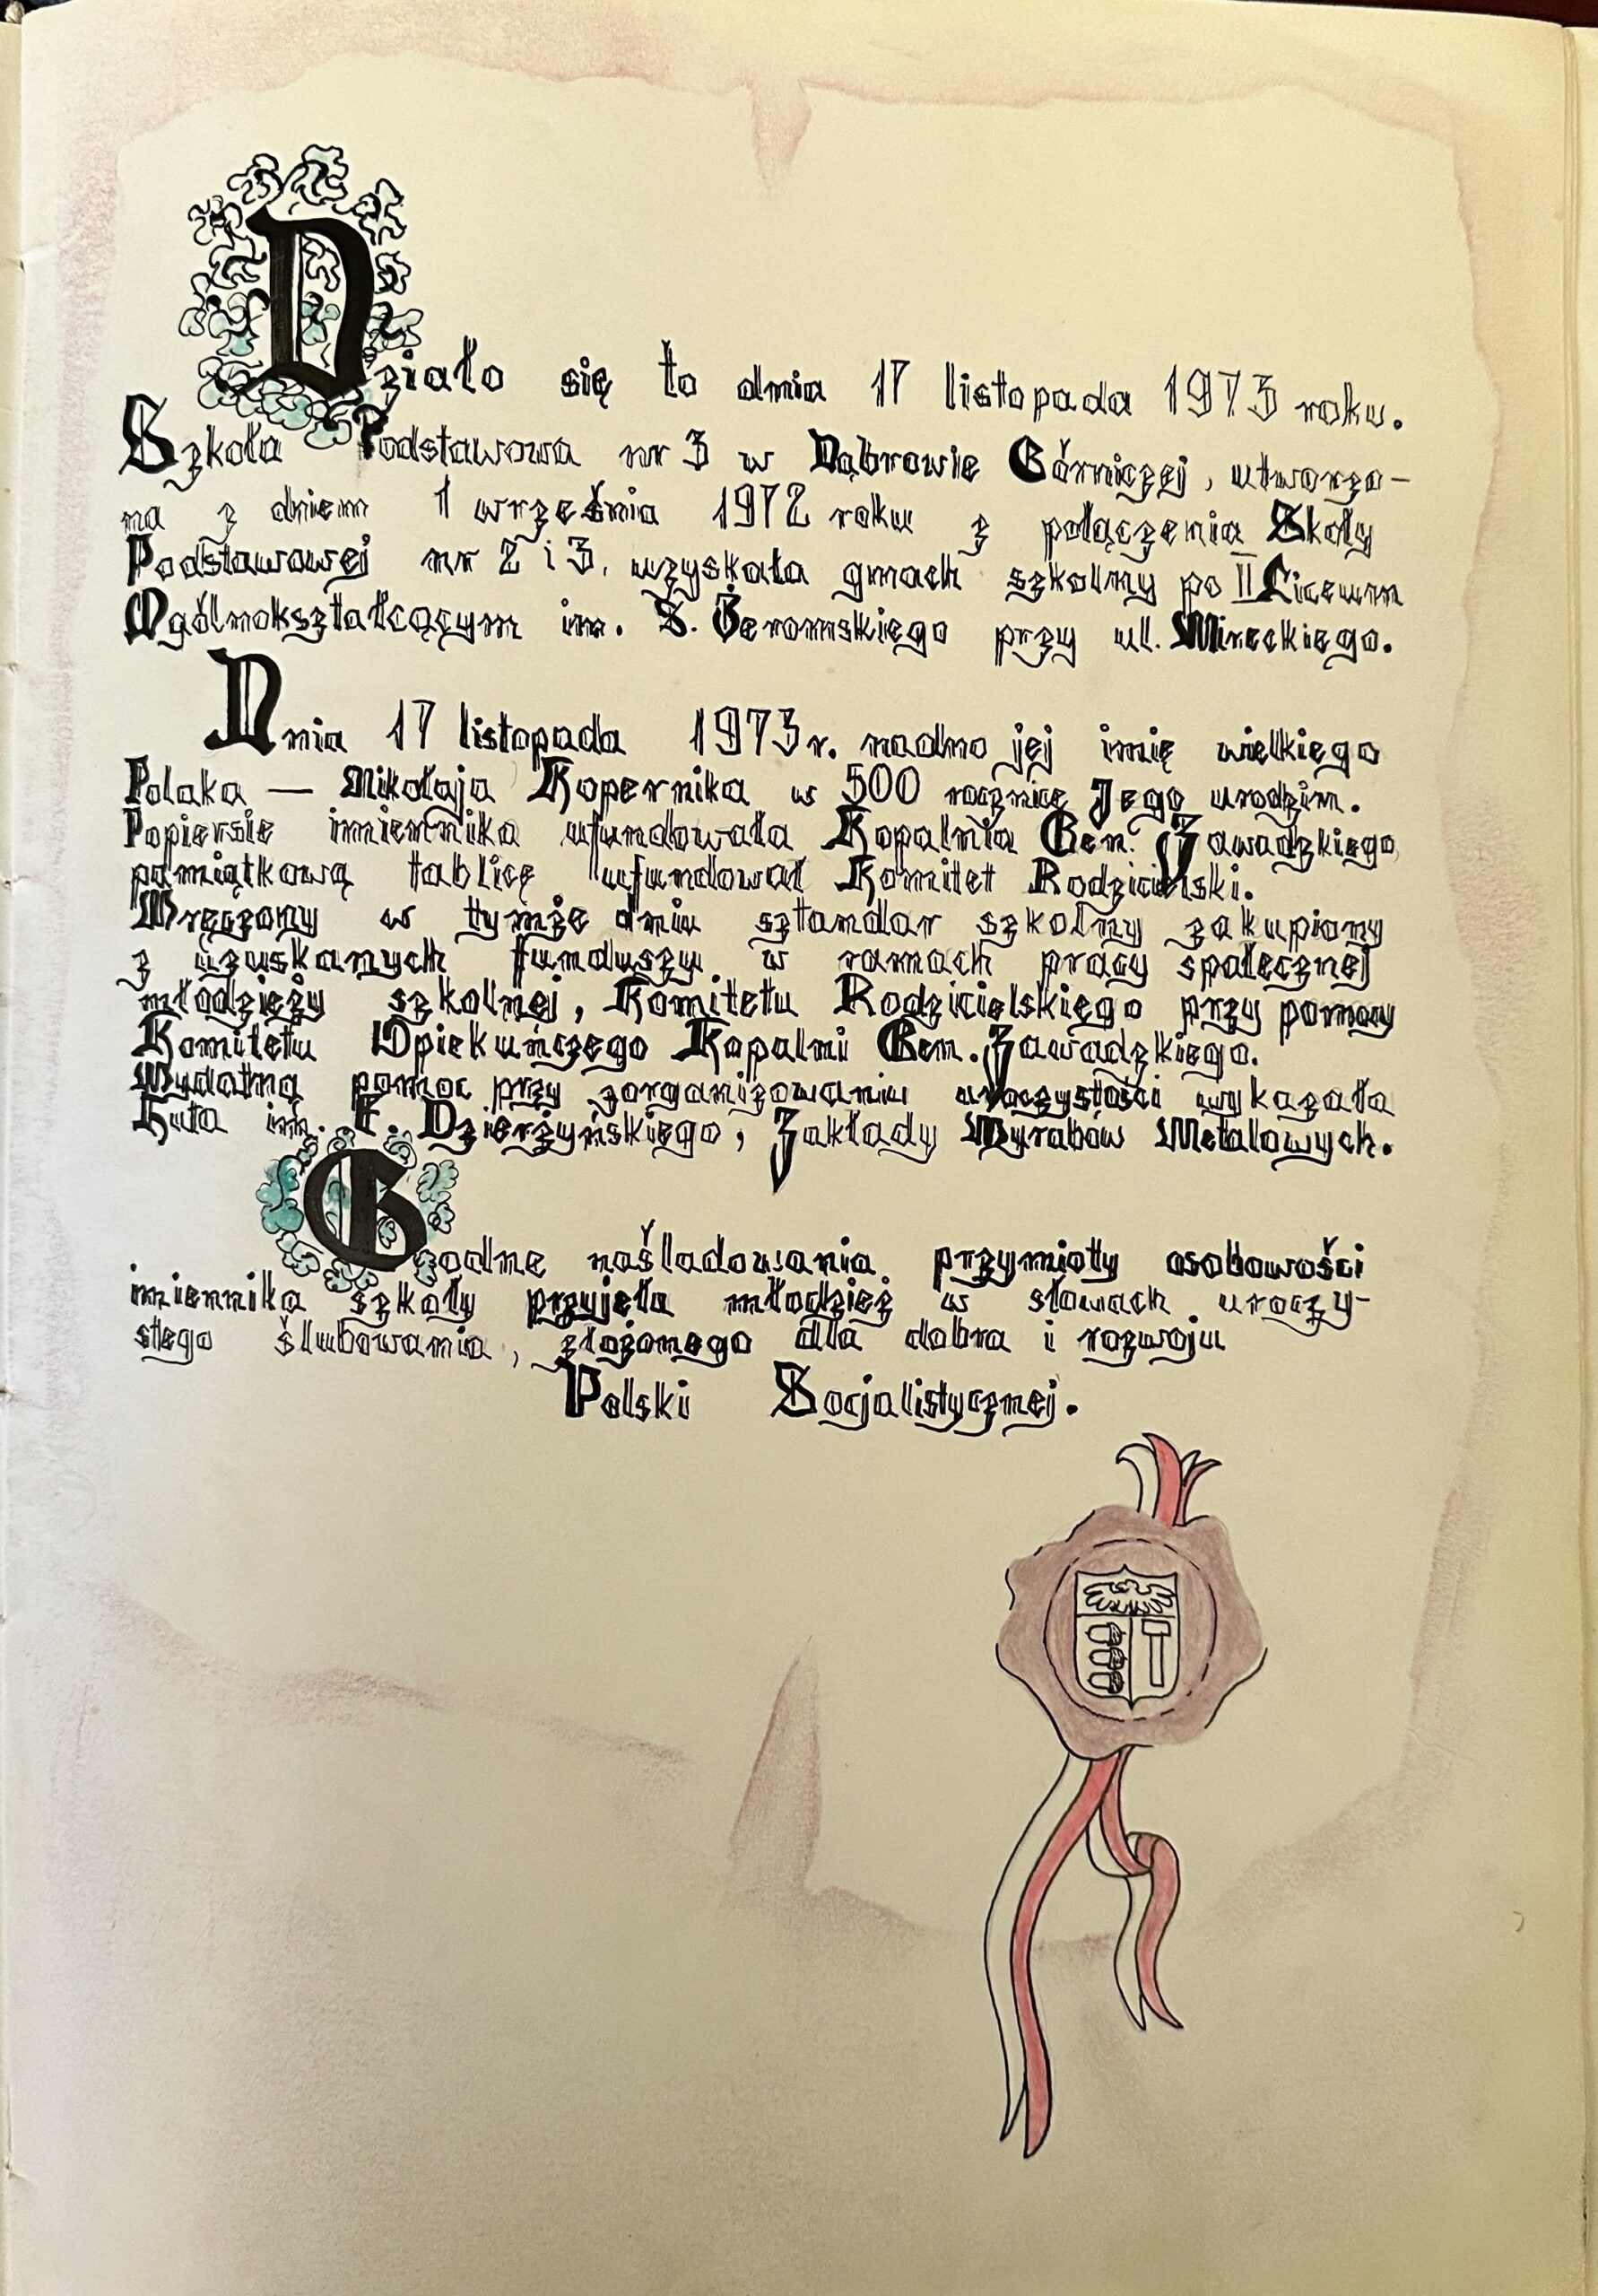 Działo się to dnia 17 listopada 1973 roku.
Szkoła Podstawowa nr 3 w Dąbrowie Górniczej, utworzo-
na z dniem 1 września 1972 roku z połączenia Skoły
Podstawowej nr 2 i 3, uzyskała gmach szkolny po II Liceum
Ogólnokształcącym im. S. Żeromskiego przy ul. Mireckiego.
Dnia 17 listopada 1973 r. nadno jej imię wielkiego
Polaka — Mikołaja Kopernika w 500 rocznicę Jego urodzin.
Popiersie imiennika ufundowała Kopalnia Gen. Zawadzkiego
pamiątkową tablicę ufundował Komitet Rodzicielski.
Wręczony w tymże dniu sztandar szkolny zakupiony
z uzyskanych funduszy w ramach pracy społecznej
młodzieży szkolnej, Komitetu Rodzicielskiego przy pomocy
Komitetu Opiekuńczego Kopalni Gen. Zawadzkiego.
Wydatną pomoc przy zorganizowaniu uroczystości wykazała
Huta im. F. Dzierżyńskiego, Zakłady Wyrobów Metalowych.
Godne naśladowania przymioty osobowości
imiennika szkoły przyjęła młodzież w słowach uroczy-
stego ślubowania, złożonego dla dobra i rozwoju
Polski Socjalistycznej.